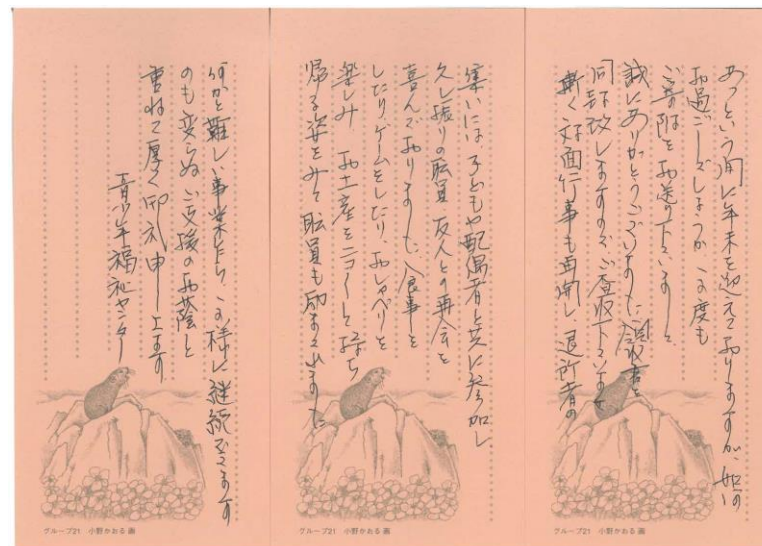 あっという間に年末を迎えておりますが、如何
お過ごしでしょうか、この度も
ご寄附をお送り下さいまして、
誠にありがとうございました。領収書を
同封致しますのでご査収下さいませ
漸く対面行事も再開し、退所者の
集いには子どもや配偶者と共に参加し
久し振りの職員、友人との再会を
喜んでおりました。食事を
したり、ゲームをしたり、おしゃべりを
楽しみ、お土産をニコニコして持ち
帰る姿をみて職員も励まされました
何かと難しい事業乍ら、この様に継続できます
のも変らぬご支援のお蔭と
重ねて厚く御礼申し上ます
青少年福祉センター
グループ21 小野かおる画
グループ21 小野かおる画
グループ21 小野かおる画